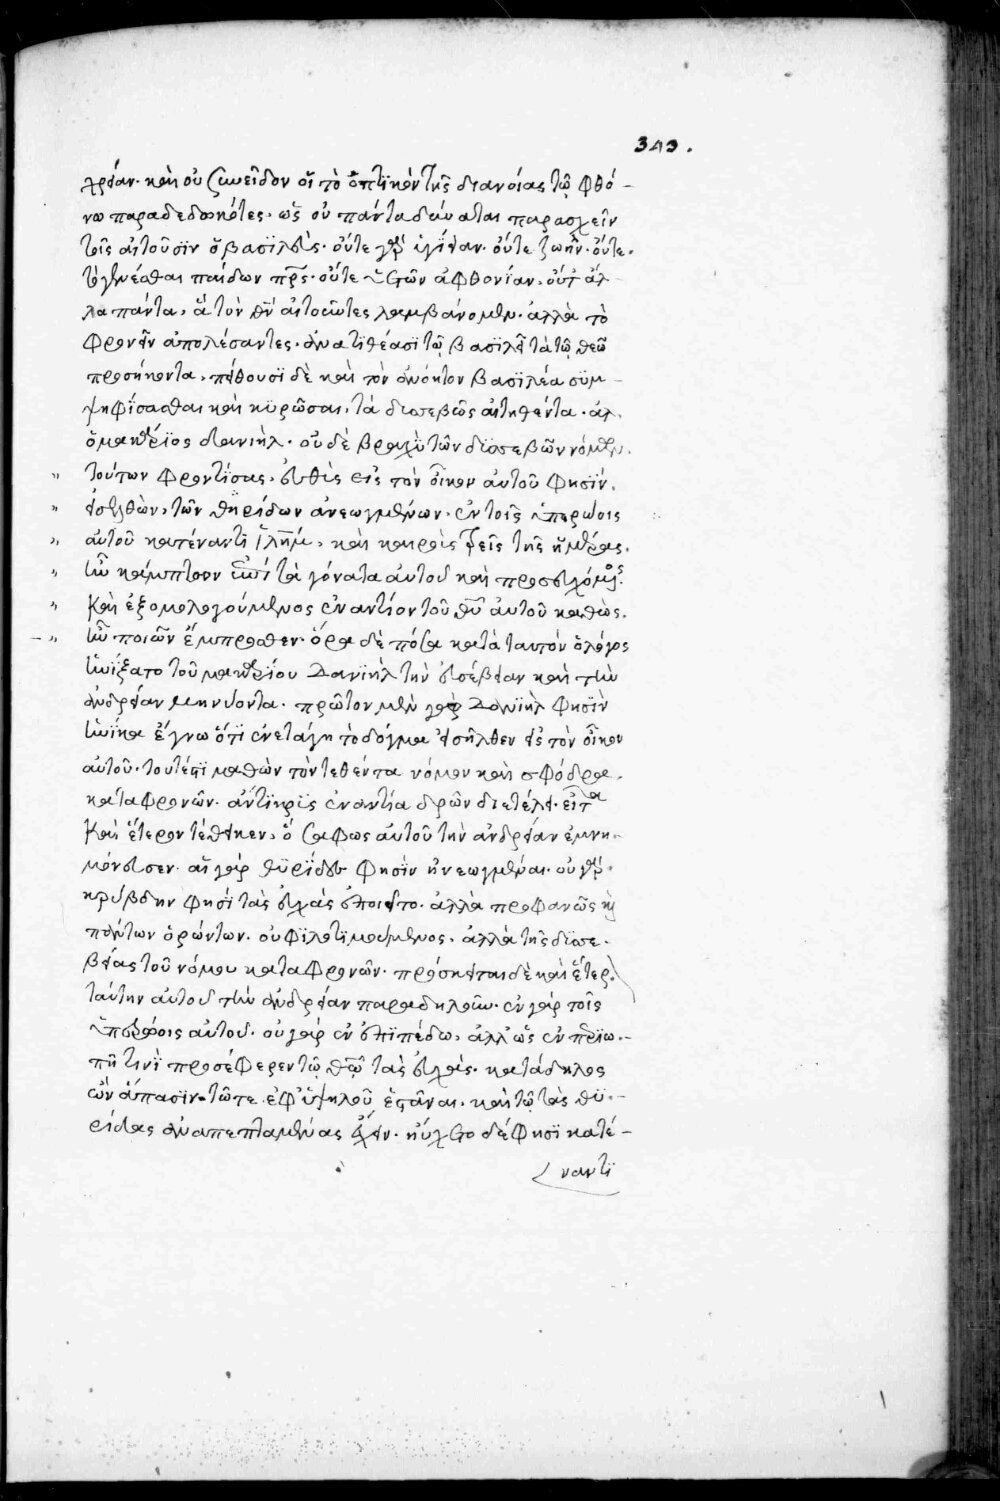 343.
χρείαν. καὶ οὐ ξυνεῖδον οἱ τὸ ὀπτικὸν τῆς διανοίας τῷ φθό-
νω παραδεδωκότες. ὡς οὐ πάντα δύναται παρασχεῖν
τοῖς αἰτοῦσϊν ὁ βασϊλεύς. οὔτε γὰρ ὑγίειαν. οὔτε ζωὴν. οὔτε.
τὸ γενέσθαι παίδων πρς. οὔτε ὑετῶν ἀφθονίαν. οὔτ ἀλ-
λα πάντα, ἃ τὸν θν αἰτοῦντες λαμβάνομεν. ἀλλὰ τὸ
φρονεῖν ἀπολέσαντες. ἀνατιθέασι τῷ βασϊλεῖ τὰ τῷ θεῶ
προσήκοντα, πείθουσϊ δὲ καὶ τὸν ἀνόητον βασϊλέα σϋμ-
ψηφίσασθαι καὶ κϋρῶσαι, τὰ δυσσεβῶς αἰτηθέντα. ἀλ.
ὁ μακάριος δανιὴλ. οὐδὲ βραχὺ τῶν δυσσεβῶν νόμων.
" τούτων φροντίσας. εὐθὺς εἰς τὸν οἶκον αὐτοῦ φησϊν.
" εἰσελθὼν, τῶν θηρίδων ἀνεωγμένων. ἐν τοῖς ὑπερώοις
" αὐτοῦ κατέναντι ἱλημ, καὶ καιροὺς τρεῖς τῆς ἡμέρας.
" ἦν κάμπτων ἐπὶ τὰ γόνατα αὐτοῦ καὶ προσευχόμενος.
" καὶ ἐξομολογούμενος ἐναντίον τοῦ θῦ αὐτοῦ καθὼς.
" ἦν ποιῶν ἔμπροσθεν. ὅρα δὲ πόσα κατὰ ταυτὸν ὁ λόγος
ἠνίξατο τοῦ μακαρίου Δανιὴλ τὴν εὐσέβειαν καὶ τὴν
ἀνδρείαν μηνύοντα. πρῶτον μὲν γὰρ Δανϊὴλ φησϊν
ἡνίκα ἔγνω ὅτι ἐνετάγη τὸ δόγμα εἰσῆλθεν εἰς τὸν οἶκον
αὐτοῦ. τουτέστι μαθὼν τὸν τεθέντα νόμον καὶ σφόδρα.
καταφρονῶν. ἀντικρὺς ἐναντία δρῶν διετέλει. εἶτα
καὶ ἕτερον τέθηκεν, ὃ σαφως αὐτοῦ τὴν ἀνδρείαν ἐμνη-
μόνευσεν. αἱ γὰρ θϋρίδες φησϊν ἠνεωγμέναι. οὐ γὰρ.
κρύβδην φησὶ τὰς εὐχὰς ἐποιεῖτο. ἀλλὰ προφανῶς κỳ
πάντων ὁρώντων. οὐ φϊλοτιμούμενος. ἀλλὰ τῆς δυσσε-
βείας τοῦ νόμου καταφρονῶν. πρόσκειται δὲ καὶ ἕτερον
ταύτην αὐτοῦ τὴν ἀνδρείαν παραδηλοῦν. ἐν γὰρ τοῖς
ὑπερώοις αὐτοῦ. οὐ γὰρ ἐν ἐπϊπέδω, ἀλλ ὡς ἐν περιω-
πῆ τινὶ προσέφερεν τῷ θῷ τὰς εὐχὰς. κατάδηλος
ὢν ἅπασϊν. τῶτε ἐφ ὑψηλοῦ ἑστάναι. καὶ τῷ τὰς θϋ-
ρίδας ἀναπεπταμένας ἔχειν. ηὔχετο δέ φησϊ κατέ-
ναντϊ